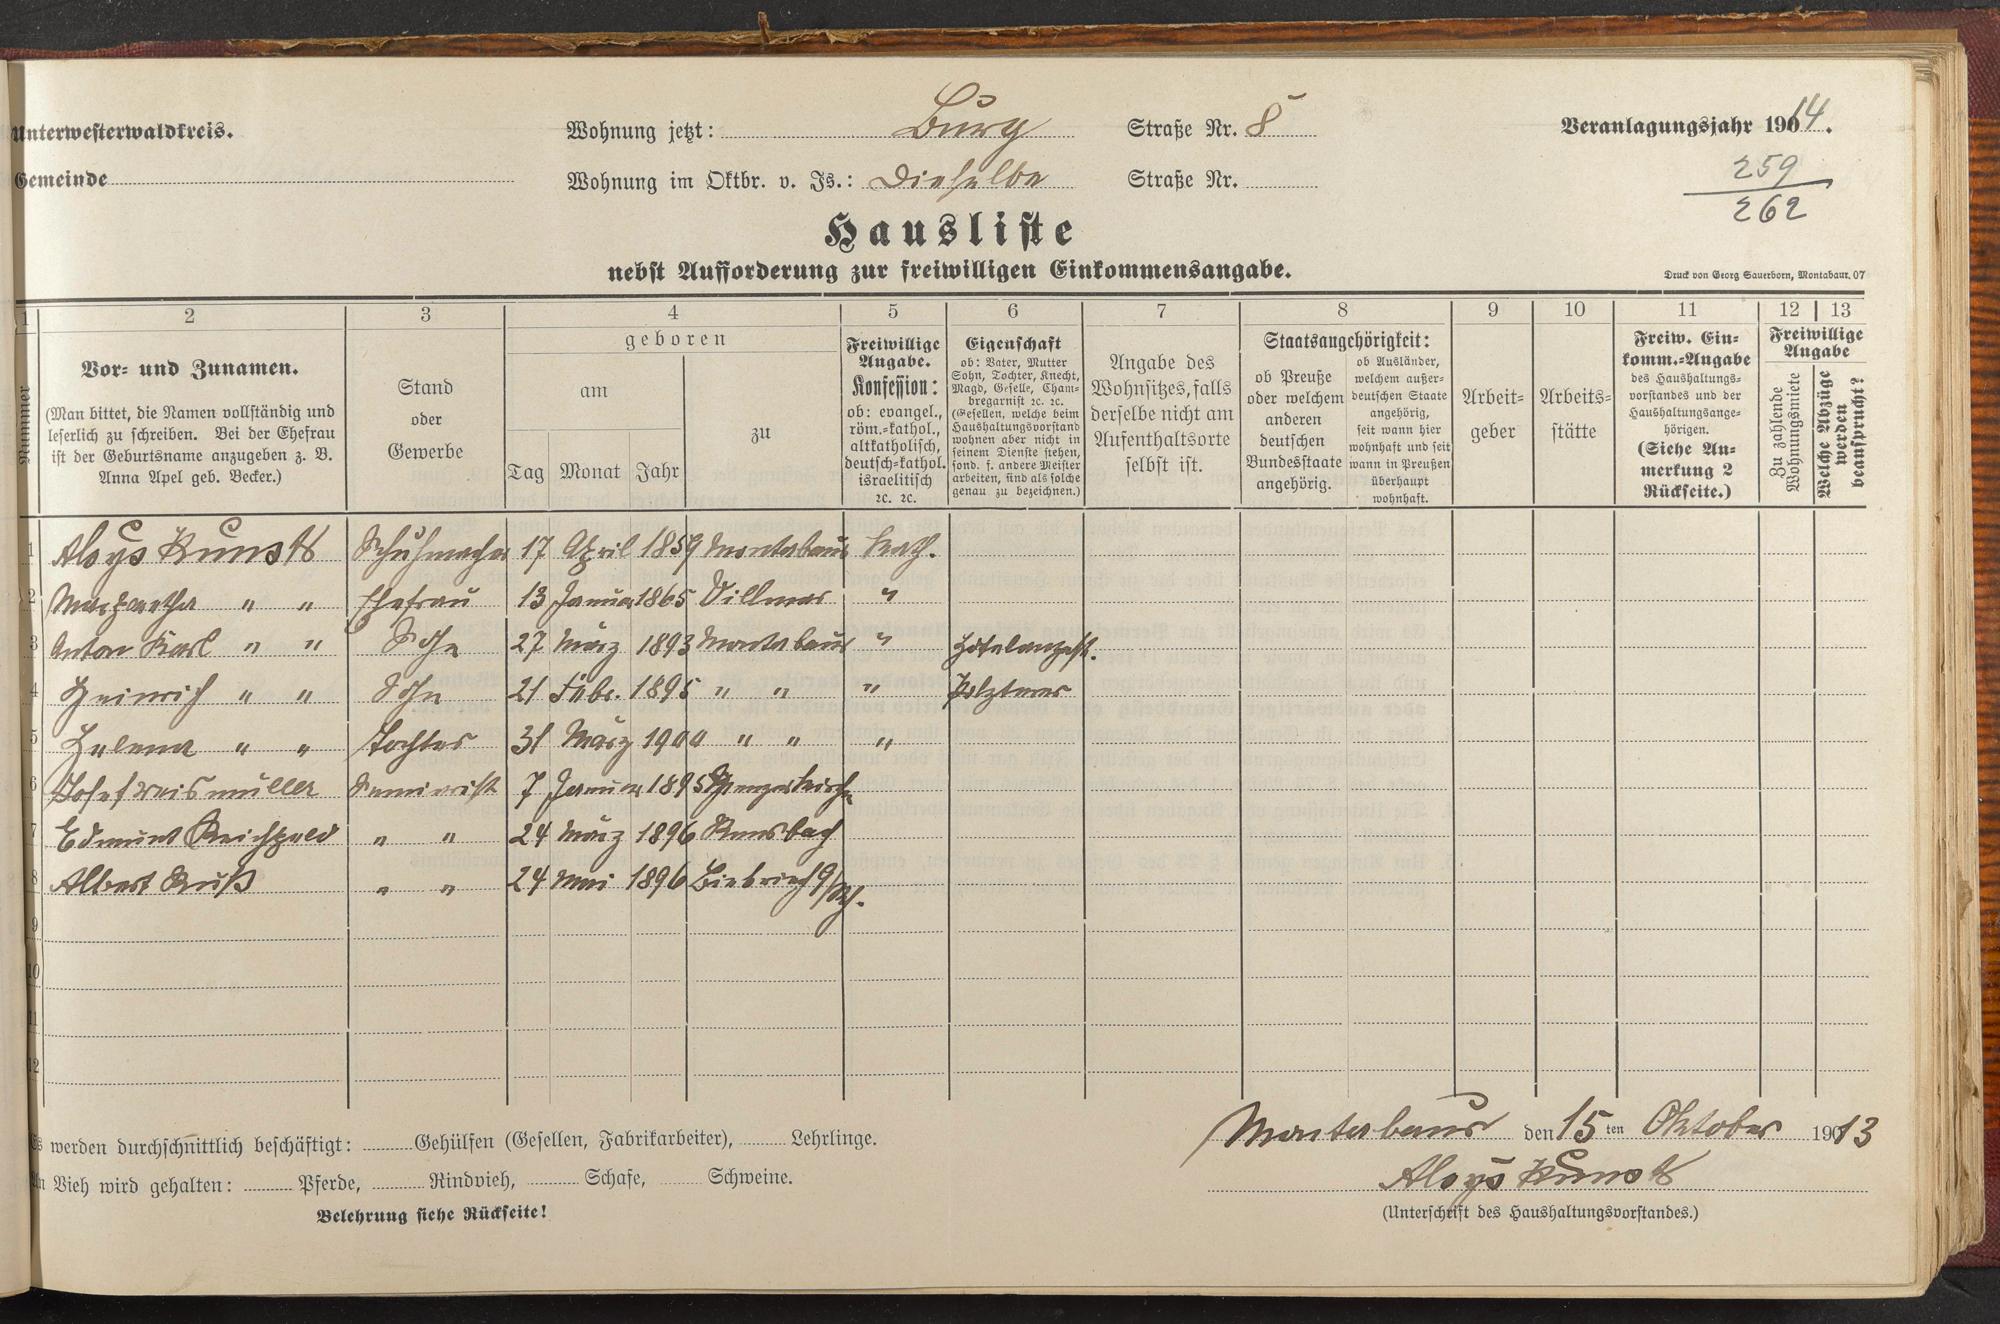 Unterwesterwaldkreis. Wohnung jetzt: Burg Straße Nr. 8 Veranlagungsjahr 1914.
Gemeinde Wohnung im Oktbr. v. Js.: Dieselbe Straße Nr.
259
262
Hausliste
nebst Aufforderung zur freiwilligen Einkommensangabe.
Druck von Georg Sauerborn, Montabaur. 07
1 2 3 4 5 6 7 8 9 10 11 12 13
Nummer
Vor- und Zunamen.
(Man bittet, die Namen vollständig und
leserlich zu schreiben. Bei der Ehefrau
ist der Geburtsname anzugeben z. B.
Anna Apel geb. Becker.)
Stand
oder
Gewerbe
geboren
am
Tag Monat Jahr
zu
Freiwillige
Angabe.
Konfession:
ob: evangel.,
röm.-kathol.,
altkatholisch,
deutsch-kathol.
israelitisch
ꝛc. ꝛc.
Eigenschaft
ob: Vater, Mutter
Sohn, Tochter, Knecht,
Magd, Geselle, Cham-
bregarnist ꝛc. ꝛc.
(Gesellen, welche beim
Haushaltungsvorstand
wohnen aber nicht in
seinem Dienste stehen,
sond. f. andere Meister
arbeiten, sind als solche
genau zu bezeichnen.)
Angabe des
Wohnsitzes, falls
derselbe nicht am
Aufenthaltsorte
selbst ist.
Staatsangehörigkeit:
ob Preuße
oder welchem
anderen
deutschen
Bundesstaate
angehörig.
ob Ausländer,
welchem außer-
deutschen Staate
angehörig,
seit wann hier
wohnhaft und seit
wann in Preußen
überhaupt
wohnhaft.
Arbeit-
geber
Arbeits-
stätte
Freiw. Ein-
komm.-Angabe
des Haushaltungs-
vorstandes und der
Haushaltungsange-
hörigen.
(Siehe An-
merkung 2
Rückseite.)
Freiwillige
Angabe
Zu zahlende
Wohnungsmiete
Welche Abzüge
werden
beansprucht?
1 Aloys Kunst Schuhmacher 17 April 1859 Montabaur kath.
2 Margaretha " " Ehefrau 13 Januar 1865 Villmar "
3 Anton Karl " " Sohn 27 März 1893 Montabaur " Hotelangest.
4 Heinrich " " Sohn 21 Febr. 1895 " " "
5 Helena " " Tochter 31 März 1900 " " "
6 Josef Weismüller Seminarist 7 Januar 1895
7 Edmund " " 24 März 1896 Ransbach
8 Albert Ruß " " 24 Mai 1896 Biebrich a/Rh.
9
10
11
12
Es werden durchschnittlich beschäftigt: Gehülfen (Gesellen, Fabrikarbeiter), Lehrlinge.
An Vieh wird gehalten: Pferde, Rindvieh, Schafe, Schweine.
Belehrung siehe Rückseite!
Montabaur den 15ten Oktober 1913
Aloys Kunst
(Unterschrift des Haushaltungsvorstandes.)